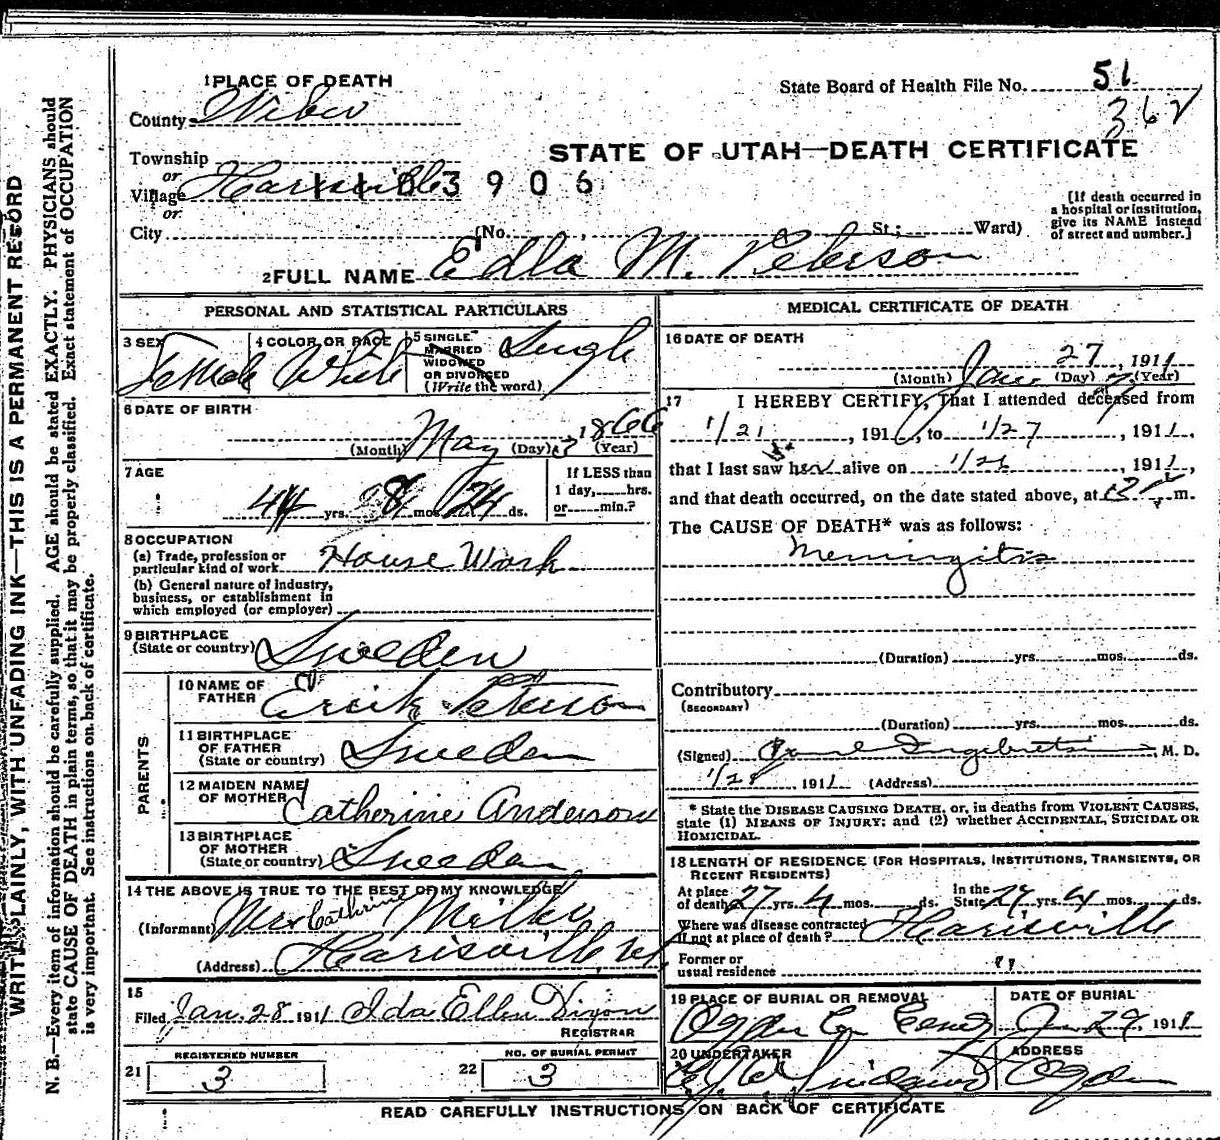 1 PLACE OF DEATH
State Board of Health File No. 51
362
County Weber
STATE OF UTAH—DEATH CERTIFICATE
Township
or
Village Harisville
1103906
or
City (No. St.; Ward)
[If death occurred in
a hospital or institution,
give its NAME instead
of street and number.]
2 FULL NAME Edla M. Peterson
PERSONAL AND STATISTICAL PARTICULARS
3 SEX Female
4 COLOR OR RACE White
5 SINGLE
MARRIED
WIDOWED
OR DIVORCED
(Write the word)
Single
6 DATE OF BIRTH
May 3 1866
(Month) (Day) (Year)
7 AGE
44 yrs. 8 mos. 24 ds.
If LESS than
1 day, hrs.
or min.?
8 OCCUPATION
(a) Trade, profession or
particular kind of work House Work
(b) General nature of industry,
business, or establishment in
which employed (or employer)
9 BIRTHPLACE
(State or country) Sweden
PARENTS
10 NAME OF
FATHER Erick Peterson
11 BIRTHPLACE
OF FATHER
(State or country) Sweden
12 MAIDEN NAME
OF MOTHER Catherine Anderson
13 BIRTHPLACE
OF MOTHER
(State or country) Sweden
14 THE ABOVE IS TRUE TO THE BEST OF MY KNOWLEDGE
(Informant) Mrs Catherine Miller
(Address) Harisville, Ut.
15
Filed Jan. 28 1911 Ida Ellen Dixon
REGISTRAR
REGISTERED NUMBER
21 3
NO. OF BURIAL PERMIT
22 3
MEDICAL CERTIFICATE OF DEATH
16 DATE OF DEATH
Jan 27, 1911
(Month) (Day) (Year)
17 I HEREBY CERTIFY, That I attended deceased from
1/21, 191, to 1/27, 1911,
that I last saw her alive on 1/26, 1911,
and that death occurred, on the date stated above, at m.
The CAUSE OF DEATH* was as follows:
Menningitis
(Duration) yrs. mos. ds.
Contributory
(SECONDARY)
(Duration) yrs. mos. ds.
(Signed) Ingebretsen, M. D.
1/28 1911 (Address)
* State the DISEASE CAUSING DEATH, or, in deaths from VIOLENT CAUSES,
state (1) MEANS OF INJURY; and (2) whether ACCIDENTAL, SUICIDAL OR
HOMICIDAL.
18 LENGTH OF RESIDENCE (FOR HOSPITALS, INSTITUTIONS, TRANSIENTS, OR
RECENT RESIDENTS)
At place
of death 27 yrs. 4 mos. ds.
In the
State 27 yrs. 4 mos. ds.
Where was disease contracted
if not at place of death? Harisville
Former or
usual residence "
19 PLACE OF BURIAL OR REMOVAL
Ogden City Cemetery
DATE OF BURIAL
Jan 29, 1911
20 UNDERTAKER
ADDRESS
Ogden
READ CAREFULLY INSTRUCTIONS ON BACK OF CERTIFICATE
WRITE PLAINLY, WITH UNFADING INK—THIS IS A PERMANENT RECORD
N. B.—Every item of information should be carefully supplied. AGE should be stated EXACTLY. PHYSICIANS should
state CAUSE OF DEATH in plain terms, so that it may be properly classified. Exact statement of OCCUPATION
is very important. See instructions on back of certificate.